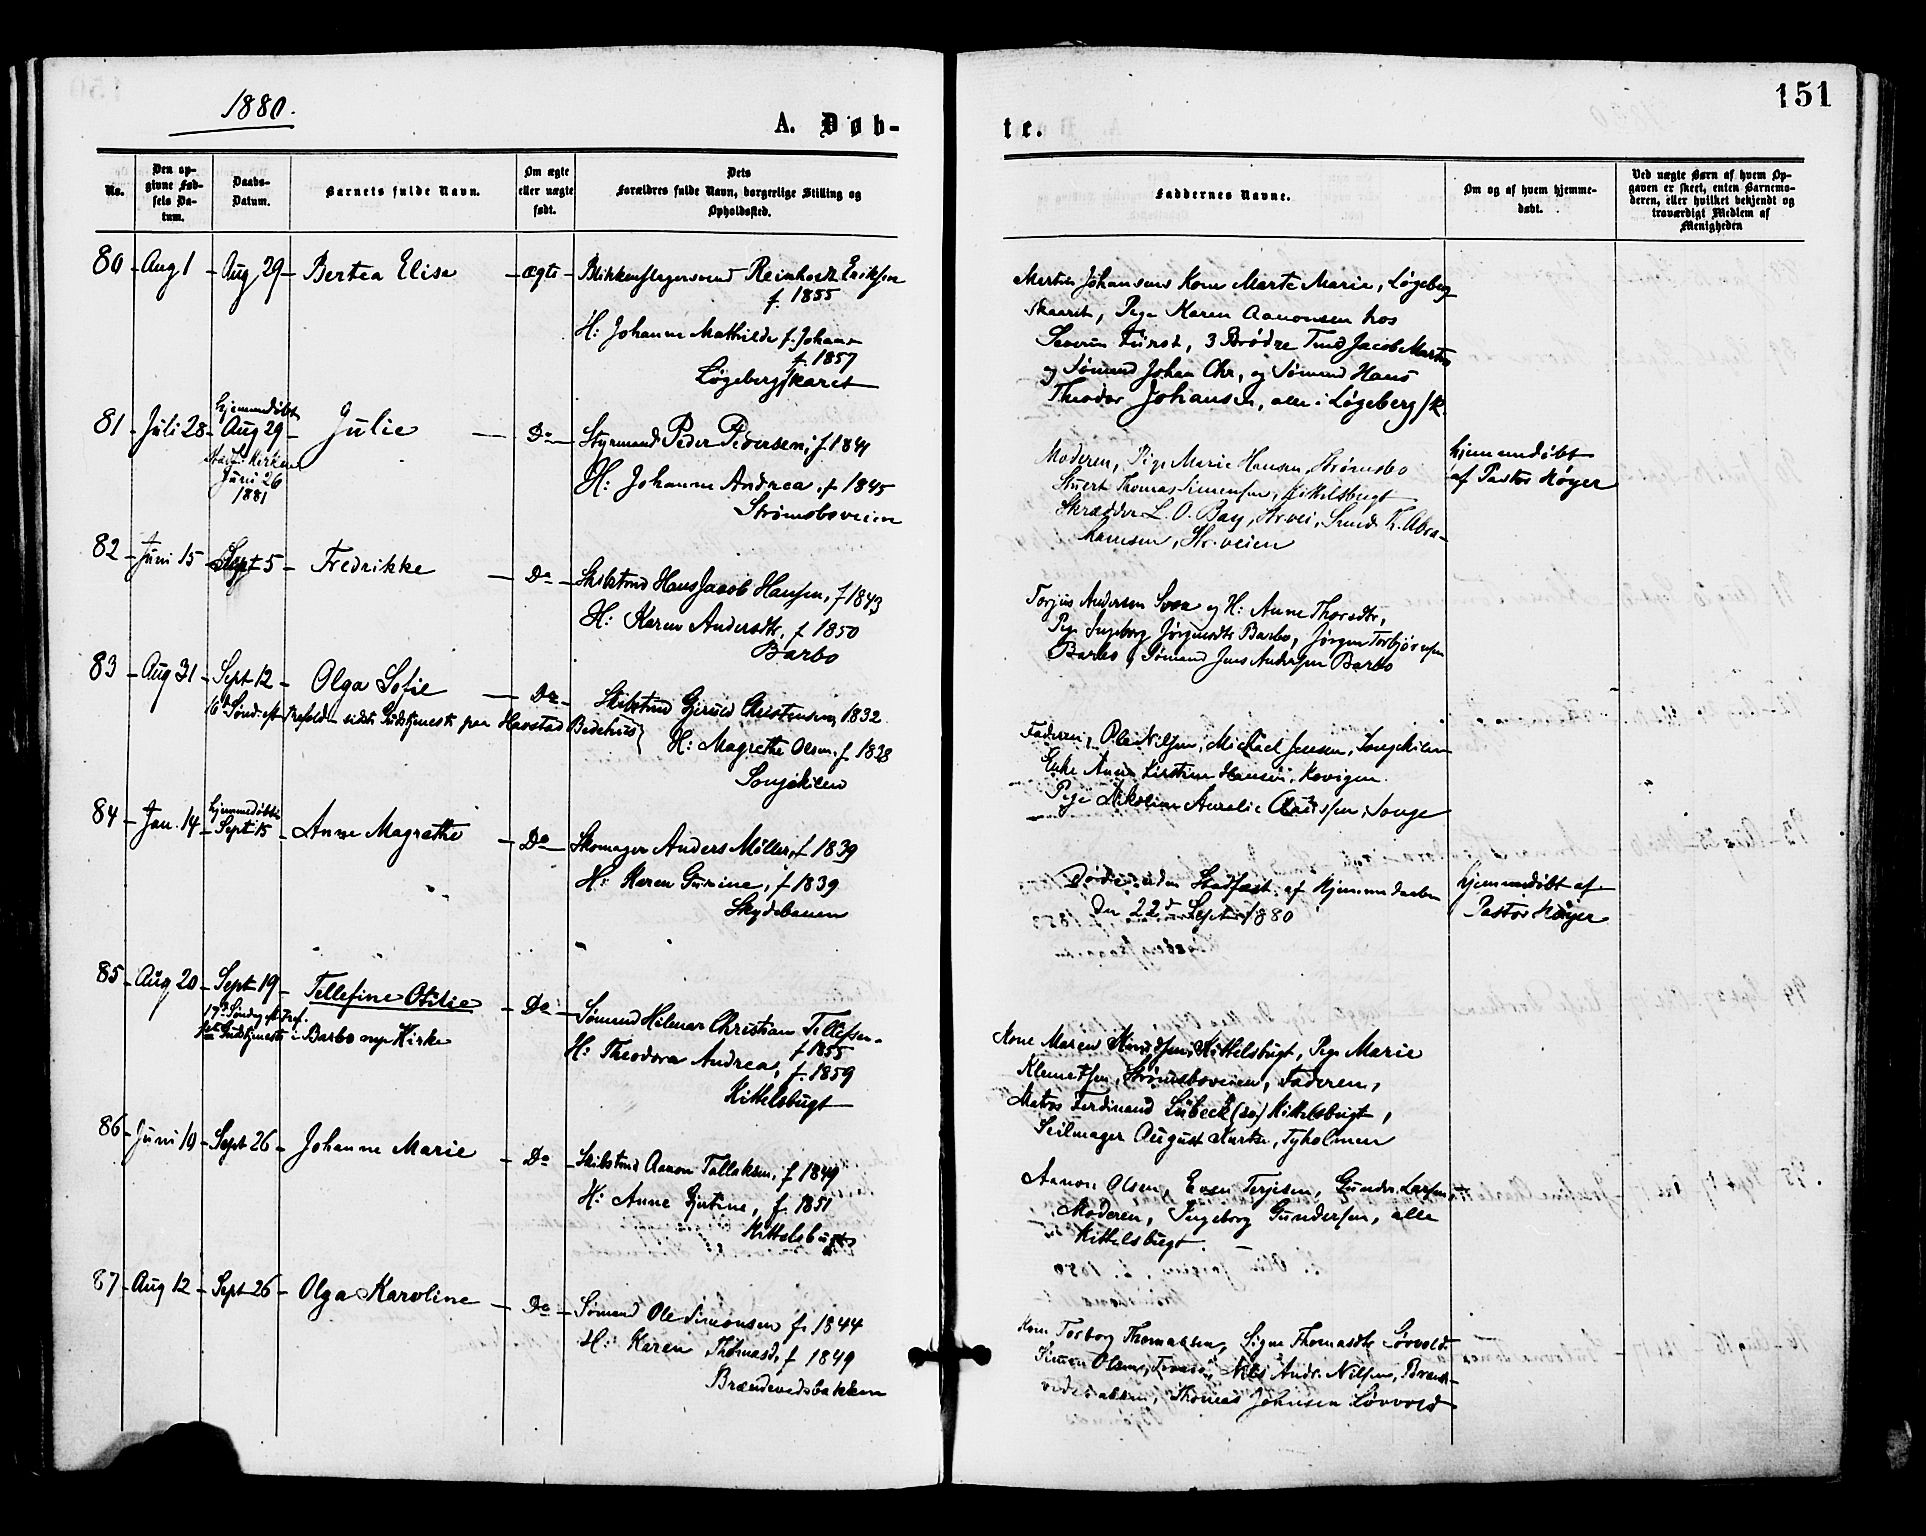 151
1880.
A. Døb-
te.
No.
Den op-
givne Fød-
sels Da-
tum.
Daabs-
Datum.
Barnets fulde Navn.
Om ægte
eller uægte
født.
Dets
Forældres fulde Navn, borgerlige Stilling og
Opholdssted.
Faddernes Navne.
Om og af hvem hjemme-
døbt.
Ved uægte Børn af hvem Op-
gaven er skeet, enten Barnemo-
deren, eller hvilket bekjendt og
troværdigt Medlem af
Menigheden
80 - Aug 1 - Aug 29 - Bertea Elise - ægte - Blikkenslagersvend Reinhardt Eriksen
f. 1855
H: Johanne Mathilde f. Johans-
f. 1857
Løgebergskaret
Martin Johansens Kone Marte Marie, Løgeberg
Skaaret, Pige Karen Aanonsen hos
Severin Fürst, 3 Brødre Tmd Jacob Martin
og Sømand Johan Chr, og Sømand Hans
Theodor Johansen, alle i Løgeberg sk.
81 - Juli 28 - hjemmedøbt
Aug 29 - Julie - Do - Styrmand Peder Pedersen, f. 1841
Kirken
Juni 26
1881
H: Johanne Andrea, f 1845
Strømsboveien
Moderen, Pige Marie Hansen, Strømsbo
Stuert Thomas Simensen, Kittelsbugt
Skrædder L. O. Bay, Str.vei, Smed K. Abra-
hamsen, Str.veien
hjemmedøbt
af Pastor Køyer
82 - Juni 15 - Sept 5 - Fredrikke - Do - Skibstmd Hans Jacob Hansen, f 1843
H: Karen Andersdtr, f 1850
Barbo
Torjus Andersen Sosa og H: Anne Thorsdtr,
Pige Ingeborg Jørgensdtr Barbo, Jørgen Torbjørnsen
Barbo, Sømand Jens Andersen Barbo
83 - Aug 31 - Sept 12 - Olga Sofie - Do - Skibstmd Gjeruld Christensen, 1832
16d Sønd. eft. Trefold. - sidste Gudstjeneste paa Havstad Bedehus
H: Magrethe Olsen, f 1838
Songekilen
Faderen, Ole Nilsen, Michael Jensen, Songekilen
Enke Anne Kirstine Hansen, Kovigen
Pige Nikoline Aurelie Claussen, Songe
84 - Jan. 14 - hjemmedøbt
Sept 15 - Anne Magrethe - Do - Skomager Anders Møller, f 1839
H: Karen Gurine, f 1839
Skydebanen
Døde uden Stadfæst. af Hjemmedaaben
Den 22d Septbr 1880
hjemmedøbt af
Pastor Køyer
85 - Aug 20 - Sept 19 - Tellefine Otilie - Do - Sømand Hilmar Christian Tellefsen
17d Søndag eft. Tref.
1ste Gudstjeneste i Barbo nye Kirke
f 1855
H: Theodora Andrea, f. 1859
Kittelsbugt
Kone Maren Knudsen, Kittelsbugt, Pige Marie
Klemetsen, Strømsboveien, Faderen,
Matros Ferdinand Lübeck (do) Kittelsbugt,
Seilmager August Kurtze, Tyholmen
86 - Juni 10 - Sept 26 - Johanne Marie - Do - Skibstmd Aanon Tallaksen, f 1849
H: Anne Gjurine, f 1851
Kittelsbugt
Aanon Olsen, Even Terjesen, Gunder Larsen,
Moderen, Ingeborg Gundersen, alle
Kittelsbugt
87 - Aug 12 - Sept 26 - Olga Karoline - Do - Sømand Ole Simonsen f. 1844
H: Karen Thomasd, f 1849
Brændevedsbakken
Kone Torborg Thomassen, Signe Thomasdtr Løvvold
Simon Olsen, Tromø, Nils Andr. Nilsen, Brænde-
vedsbakken, Thomas Johnsen Løvvold